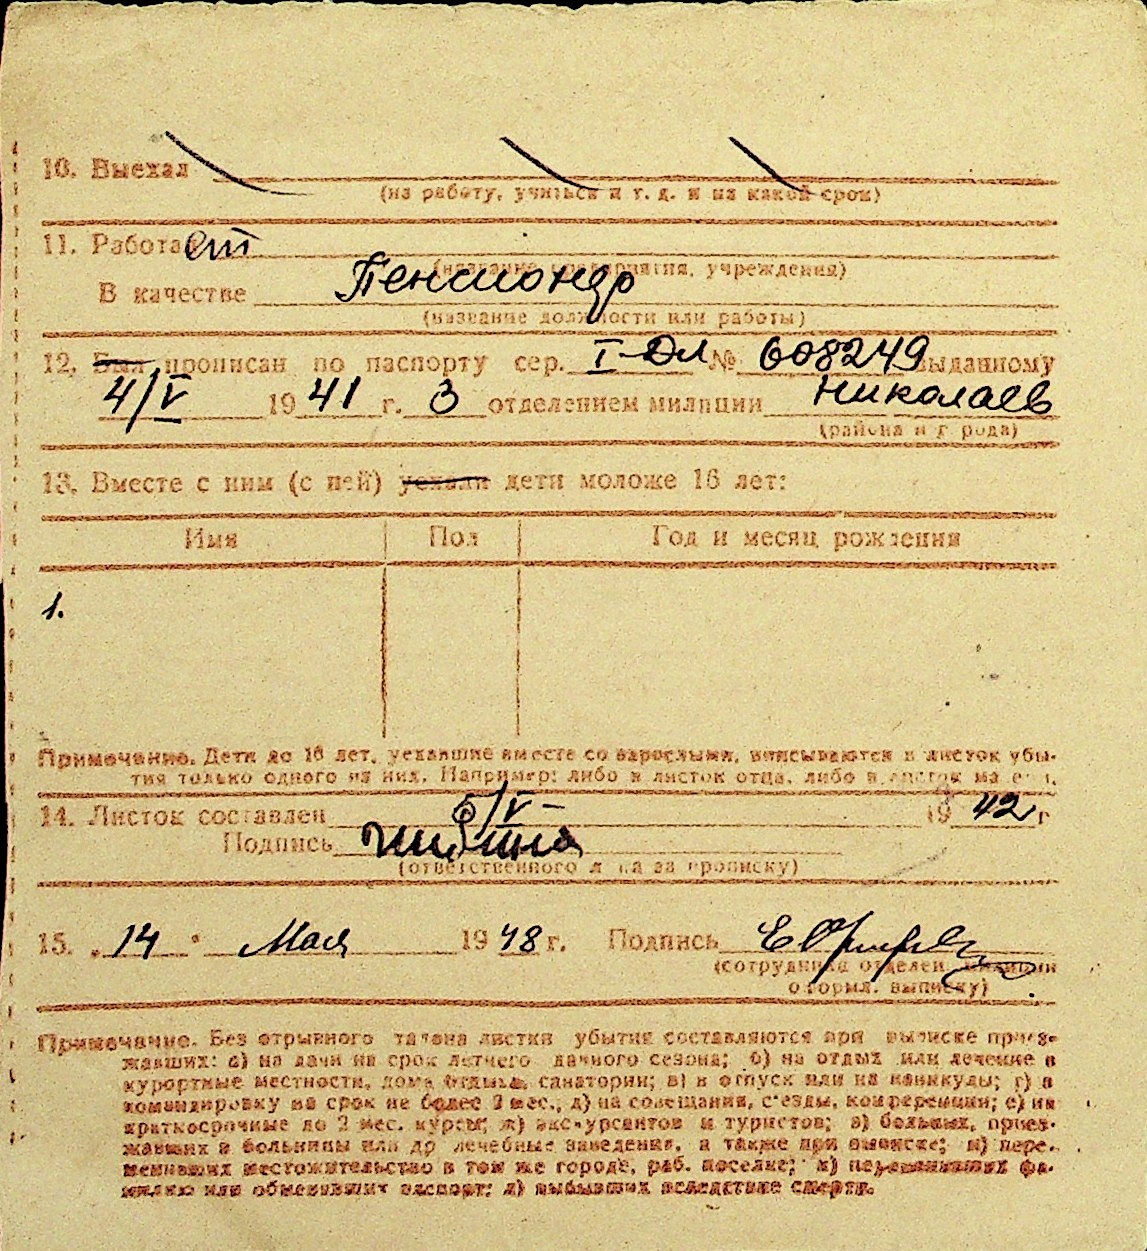 10. Выехал
(на работу, учиться и т. д. и на какой срок)
11. Работает
(название предприятия, учреждения)
В качестве Пенсионер
(название должности или работы)
12. Был прописан по паспорту сер. I-ОЛ № 608249 выданному
4/V 1941 г. 3 отделением милиции Николаев
(района и города)
13. Вместе с ним (с ней) уехали дети моложе 16 лет:
Имя Пол Год и месяц рождения
1.
Примечание. Дети до 16 лет, уехавшие вместе со взрослыми, вписываются в листок убы-
тия только одного из них. Например: либо в листок отца, либо в листок матери.
14. Листок составлен 5/V- 1942 г
Подпись
(ответственного лица за прописку)
15. „14" Мая 1948 г. Подпись
(сотрудника отделен. милиции
оформл. выписку)
Примечание. Без отрывного талона листки убытия составляются при выписке приез-
жавших: а) на дачи на срок летнего дачного сезона; б) на отдых или лечение в
курортные местности, дома отдыха, санатории; в) в отпуск или на каникулы; г) в
командировку на срок не более 2 мес., д) на совещания, с'езды, конференции; е) на
краткосрочные до 2 мес. курсы; ж) экскурсантов и туристов; з) больных, приез-
жавших в больницы или др лечебные заведения, а также при выписке; и) пере-
менивших местожительство в том же городе, раб. поселке; к) переменивших фа-
милию или обменявших паспорт; л) выбывших вследствие смерти.